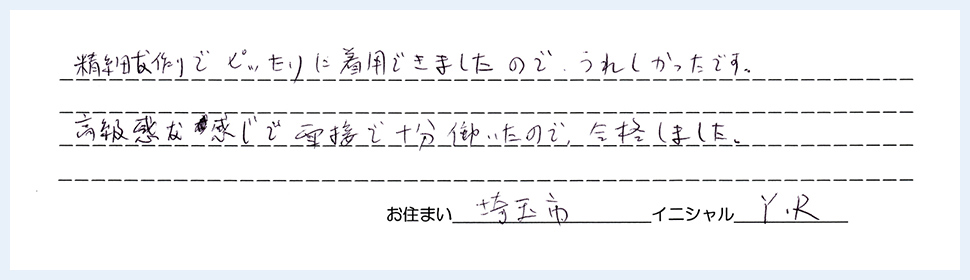 精細な作りでピッたりに着用できましたので、うれしかったです。
高級感な感じで面接で十分働いたので、合格しました。
お住まい 埼玉市 イニシャル Y.R